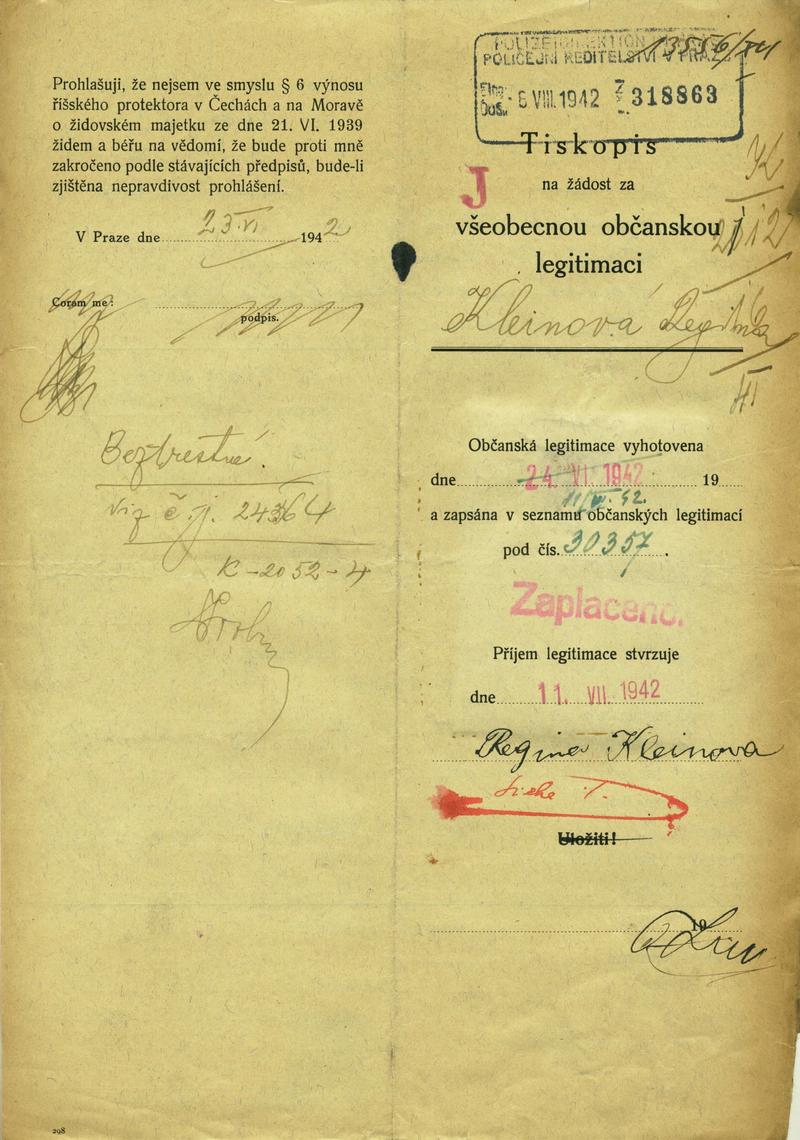 Prohlašuji, že nejsem ve smyslu § 6 výnosu
říšského protektora v Čechách a na Moravě
o židovském majetku ze dne 21. VI. 1939
židem a béřu na vědomí, že bude proti mně
zakročeno podle stávajících předpisů, bude-li
zjištěna nepravdivost prohlášení.
V Praze dne 23. VI 1942
Coram me:
podpis.
Beztrestná.
viz č. j. 24364
K - 2052 - 4
298
POLICEJNÍ ŘEDITELSTVÍ V PRAZE
Došlo - 5 VIII. 1942 318863
Tiskopis
J
na žádost za
všeobecnou občanskou
legitimaci
Kleinová
Občanská legitimace vyhotovena
dne 24. VI. 1942 19
a zapsána v seznamu občanských legitimací
pod čís. 30357.
Zaplaceno.
Příjem legitimace stvrzuje
dne 11. VII. 1942
Regina Kleinova
Uložiti!
19